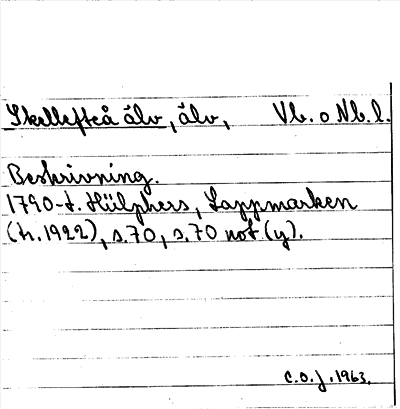 Skellefteå älv, älv, Vb. o Nb. l.
Beskrivning.
1790-t. Hülphers, Lappmarken
(tr. 1922), s. 70, s. 70 not (y).
C.O.J. 1963.